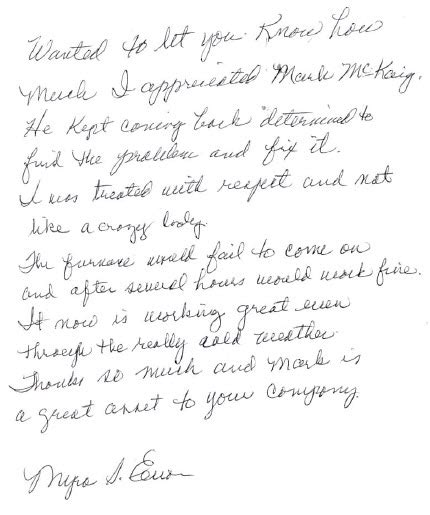 Wanted to let you know how
much I appreciated Mark McKaig.
He kept coming back determined to
find the problem and fix it.
I was treated with respect and not
like a crazy lady.
The furnace would fail to come on
and after several hours would work fine.
It now is working great even
through the really cold weather.
Thanks so much and Mark is
a great asset to your company.
Myra S.